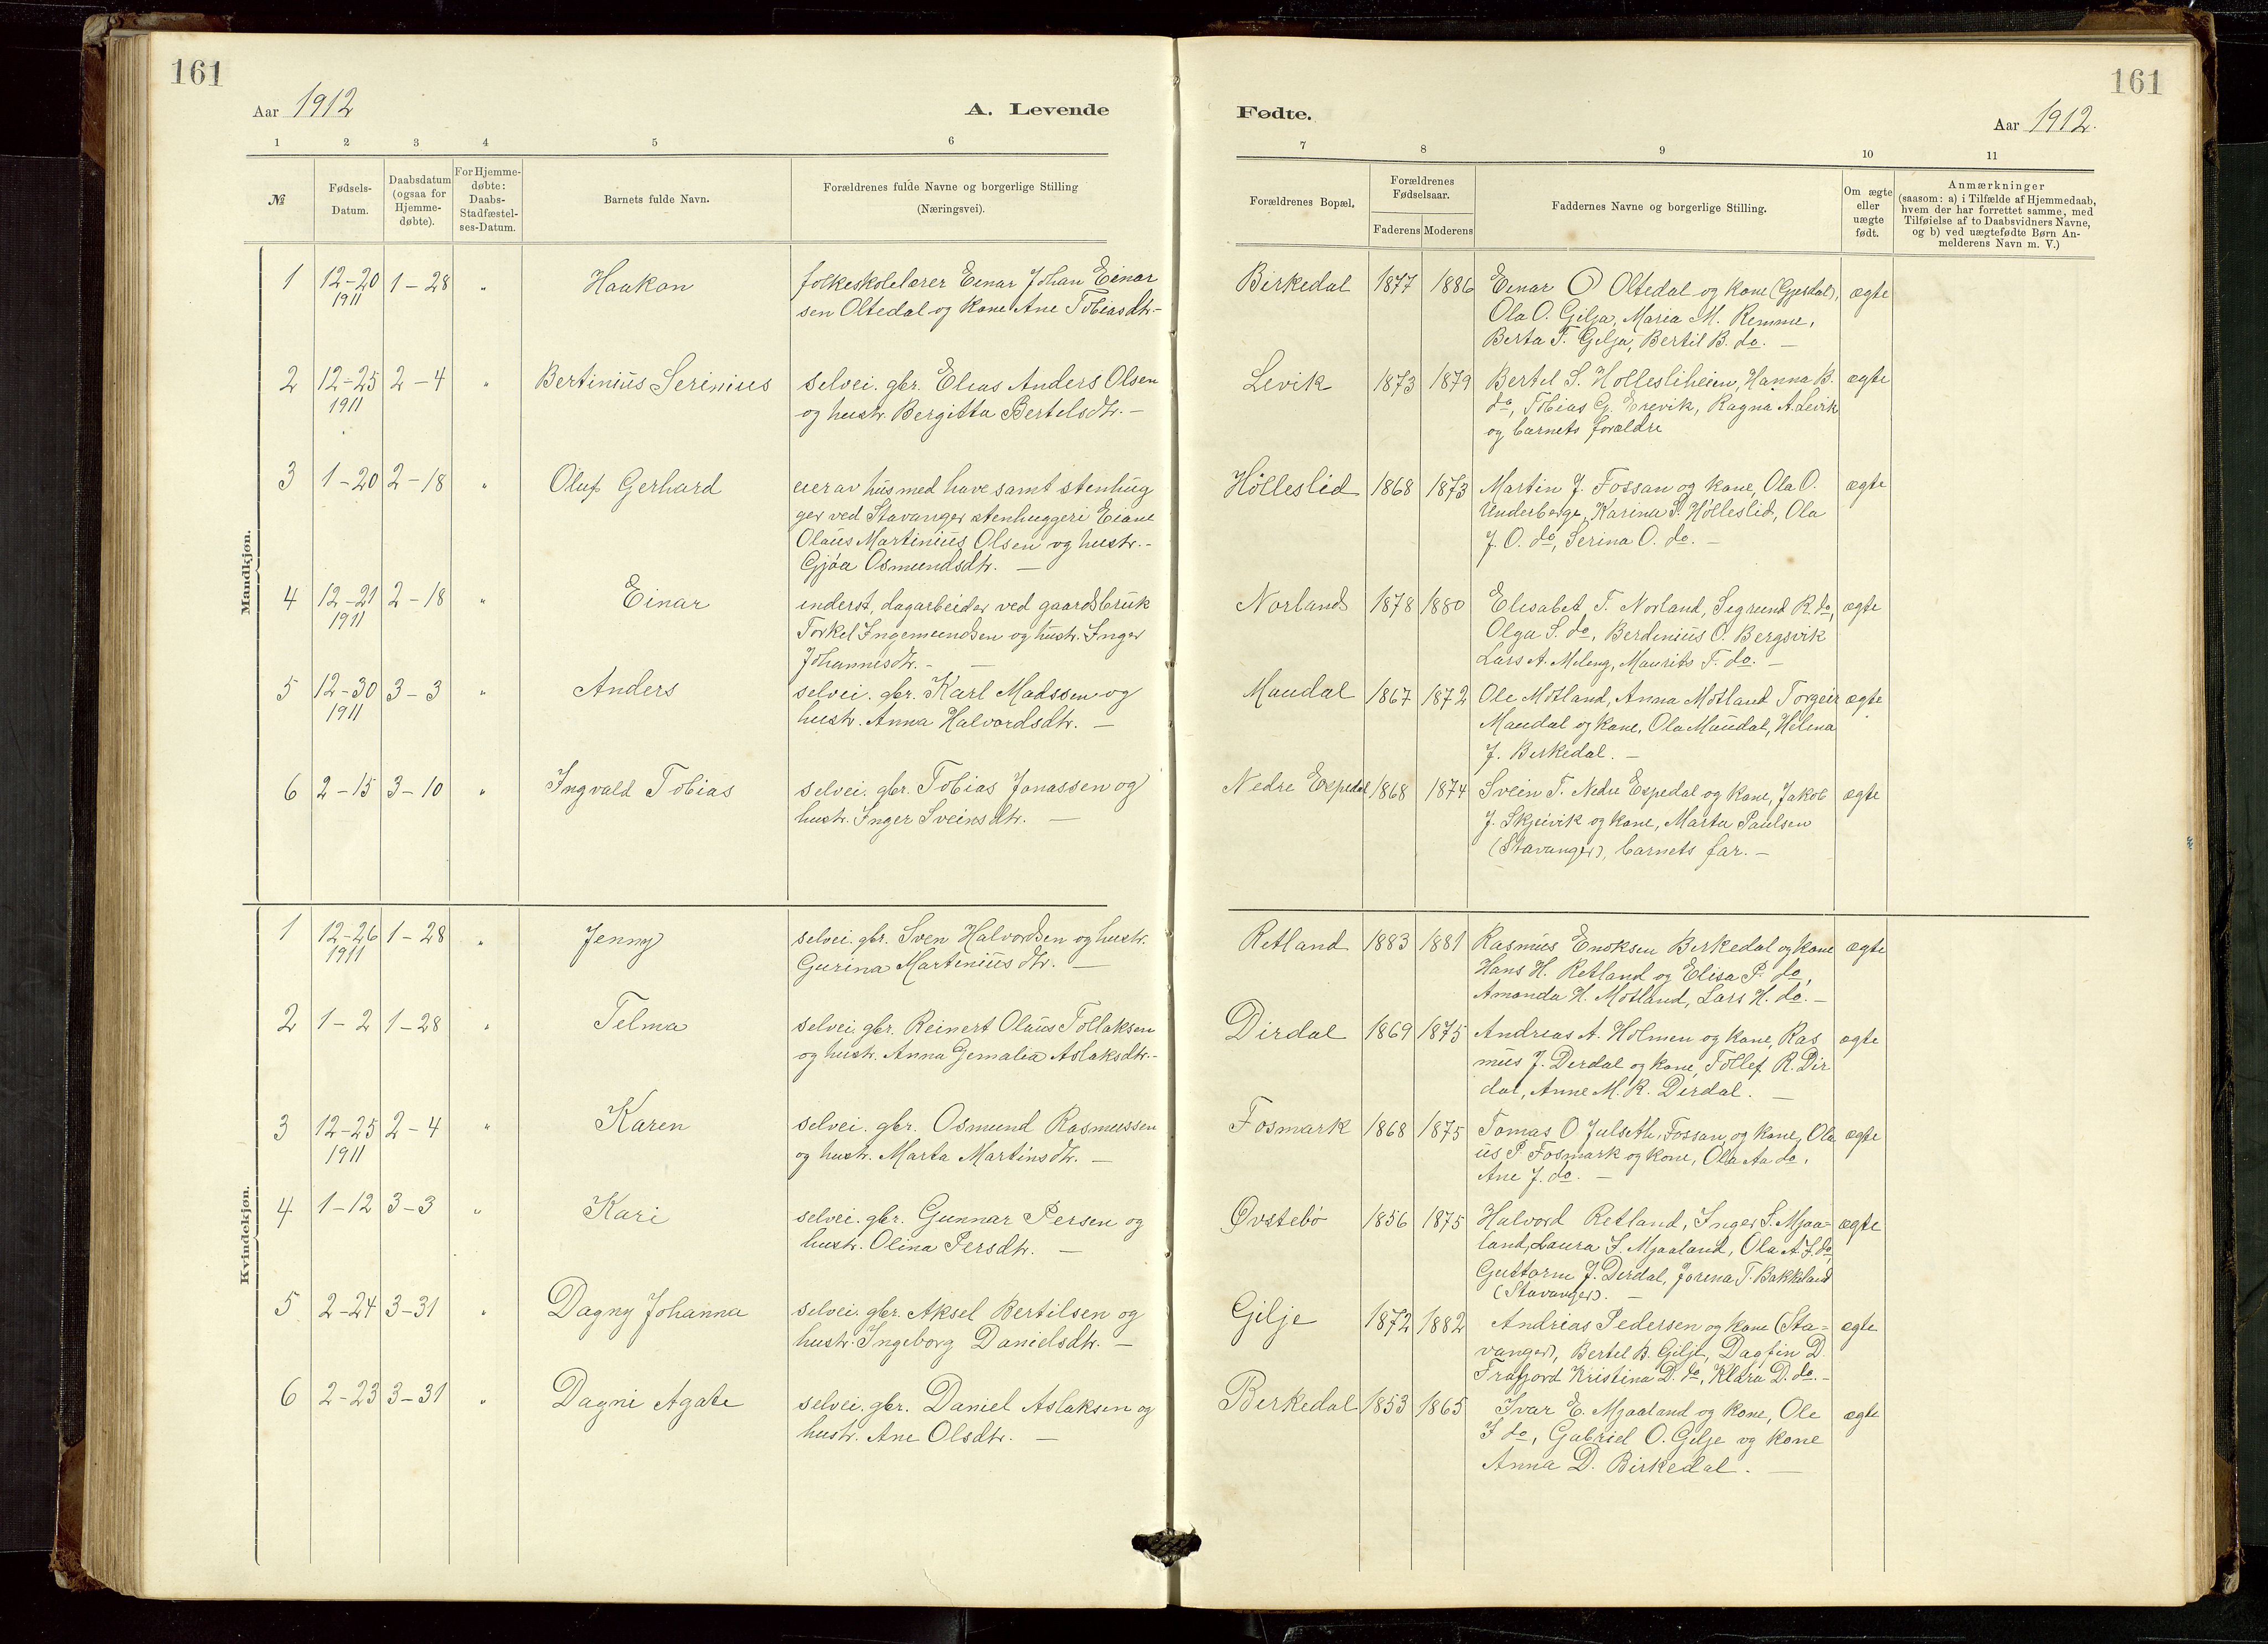 161
Aar 1912
A. Levende
1 2 3 4 5 6
№
Fødsels-Datum.
Daabsdatum (ogsaa for Hjemme-døbte).
For Hjemme-døbte: Daabs-Stadfæstel-ses-Datum.
Barnets fulde Navn.
Forældrenes fulde Navne og borgerlige Stilling
(Næringsvei).
Mandkjøn.
1 12-20 1-28 " Haakon folkeskolelærer Einar Johan Einar
1911 sen Oltedal og kone Ane Tobiasdtr.-
2 12-25 2-4 " Bertinius Serinius selvei. gbr. Elias Anders Olsen
1911 og hustr. Bergitta Bertelsdtr. -
3 1-20 2-18 " Oluf Gerhard eier av hus med have samt stenhug
ger ved Stavanger stenhuggeri Eiane
Olaus Martinius Olsen og hustr.-
Gjøa Osmundsdtr. -
4 12-21 2-18 " Einar inderst, dagarbeider ved gaardsbruk
1911 Torkel Ingemundsen og hustr. Inger
Johannesdtr. -
5 12-30 3-3 " Anders selvei. gbr. Karl Madssen og
1911 hustr. Anna Halvordsdtr. -
6 2-15 3-10 " Ingvald Tobias selvei. gbr. Tobias Jonassen og
hustr. Inger Sveinsdtr. -
Kvindekjøn.
1 12-26 1-28 " Jenny selvei. gbr. Sven Halvordsen og hustr.
1911 Gurina Martiniusdtr. -
2 1-2 1-28 " Telma selvei. gbr. Reinert Olaus Tollaksen
og hustr. Anna Jemalia Aslaksdtr.-
3 12-25 2-4 " Karen selvei. gbr. Osmund Rasmussen
1911 og hustr. Marta Martinsdtr. -
4 1-12 3-3 " Kari selvei. gbr. Gunnar Persen og
hustr. Olina Persdtr. -
5 2-24 3-31 " Dagny Johanna selvei. gbr. Aksel Bertilsen og
hustr. Ingeborg Danielsdtr. -
6 2-23 3-31 " Dagni Agate selvei. gbr. Daniel Aslaksen og
hustr. Ane Olsdtr. -
161
Fødte.
Aar 1912.
7 8 9 10 11
Forældrenes Bopæl.
Forældrenes Fødselsaar.
Faderens Moderens
Faddernes Navne og borgerlige Stilling.
Om ægte eller uægte født.
Anmærkninger
(saasom: a) i Tilfælde af Hjemmedaab,
hvem der har forrettet samme, med
Tilføielse af to Daabsvidners Navne,
og b) ved uægtefødte Børn An-
melderens Navn m. V.)
Birkedal 1877 1886 Einar O Oltedal og kone (Gjesdal), ægte
Ola O. Gilja, Maria M. Remme,
Berta T. Gilja, Bertil B. do. -
Levik 1873 1879 Bertel S. Hollesliheien, Hanna B. ægte
do, Tobias G. Erevik, Ragna A. Levik
og barnets forældre
Hølleslid 1868 1873 Martin J. Fossan og kone, Ola O. ægte
Underberge, Karina P. Hølleslid, Ola
J. O. do, Serina O. do. -
Norland 1878 1880 Elisabet T. Norland, Segmund R. do, ægte
Olga S. do, Berdinius O. Bergsvik
Lars A. Meleng, Maurits T. do. -
Maudal 1867 1872 Ole Motland, Anna Motland Torgeir ægte
Maudal og kone, Ola Maudal, Helena
J. Birkedal. -
Nedre Espedal 1868 1874 Svein T. Nedre Espedal og kone, Jakob ægte
J. Skjeivik og kone, Marta Paulsen
(Stavanger), barnets far. -
Retland 1883 1881 Rasmus Enoksen Birkedal og kone ægte
Hans H. Retland og Elisa P. do,
Amanda H. Motland, Lars H. do. -
Dirdal 1869 1875 Andreas A. Holmen og kone, Ras ægte
mus J. Dirdal og kone, Tollef R. Dir
dal, Anne M. R. Dirdal. -
Fosmark 1868 1875 Tomas O Julseth, Fossan, og kone, Ola ægte
us P. Fosmark og kone, Ola Aa do,
Ane J. do. -
Øvstebø 1856 1875 Halvord Retland, Inger S. Mjaa- ægte
land, Laura S. Mjaaland, Ola A. T. do,
Guttorm J. Dirdal, Jorena T. Bakkeland
(Stavanger). -
Gilje 1872 1882 Andreas Pedersen og kone (Sta- ægte
vanger), Bertel B. Gilje, Dagfin D.
Frafjord Kristina D. do, Klara D. do. -
Birkedal 1853 1865 Ivar E. Mjaaland og kone, Ole ægte
I do, Gabriel O. Gilje og kone
Anna D. Birkedal. -